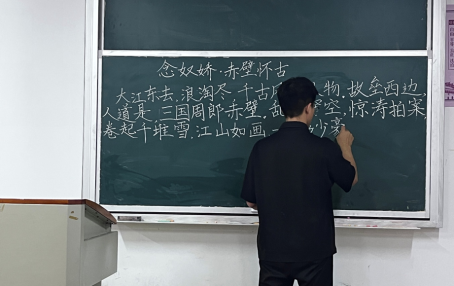 念奴娇·赤壁怀古
大江东去,浪淘尽.千古 物.故垒西边,
人道是.三国周郎赤壁. 空.惊涛拍
卷起千堆雪.江山如画. 少豪